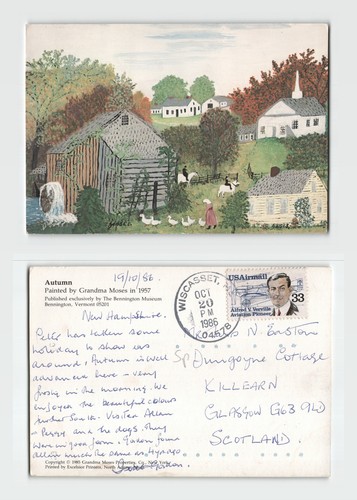 Autumn
Painted by Grandma Moses in 1957
Published exclusively by The Bennington Museum
Bennington, Vermont 05201
19/10/86.
New Hampshire.
has taken some
holiday to show us
around, Autumn is well
advanced here - very
frosty in the morning. We
enjoyed the beautiful colours
further South. Visited
and the dogs. They
were in good form. Jason found
much the same as
Copyright © 1985 Grandma Moses Properties, Co., New York
WISCASSET,
OCT
20
PM
1986
04578
USAirmail
Alfred V. Verville
Aviation Pioneer
33
N. Easton
Dungoyne Cottage
KILLEARN
GLASGOW G63 9LD
SCOTLAND.